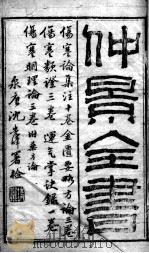 仲景全書
傷寒論集注十卷金匱要略方論三卷
傷寒類證三卷 運氣掌訣錄一卷
傷寒明理論三卷 卅藥方論
泉唐沈